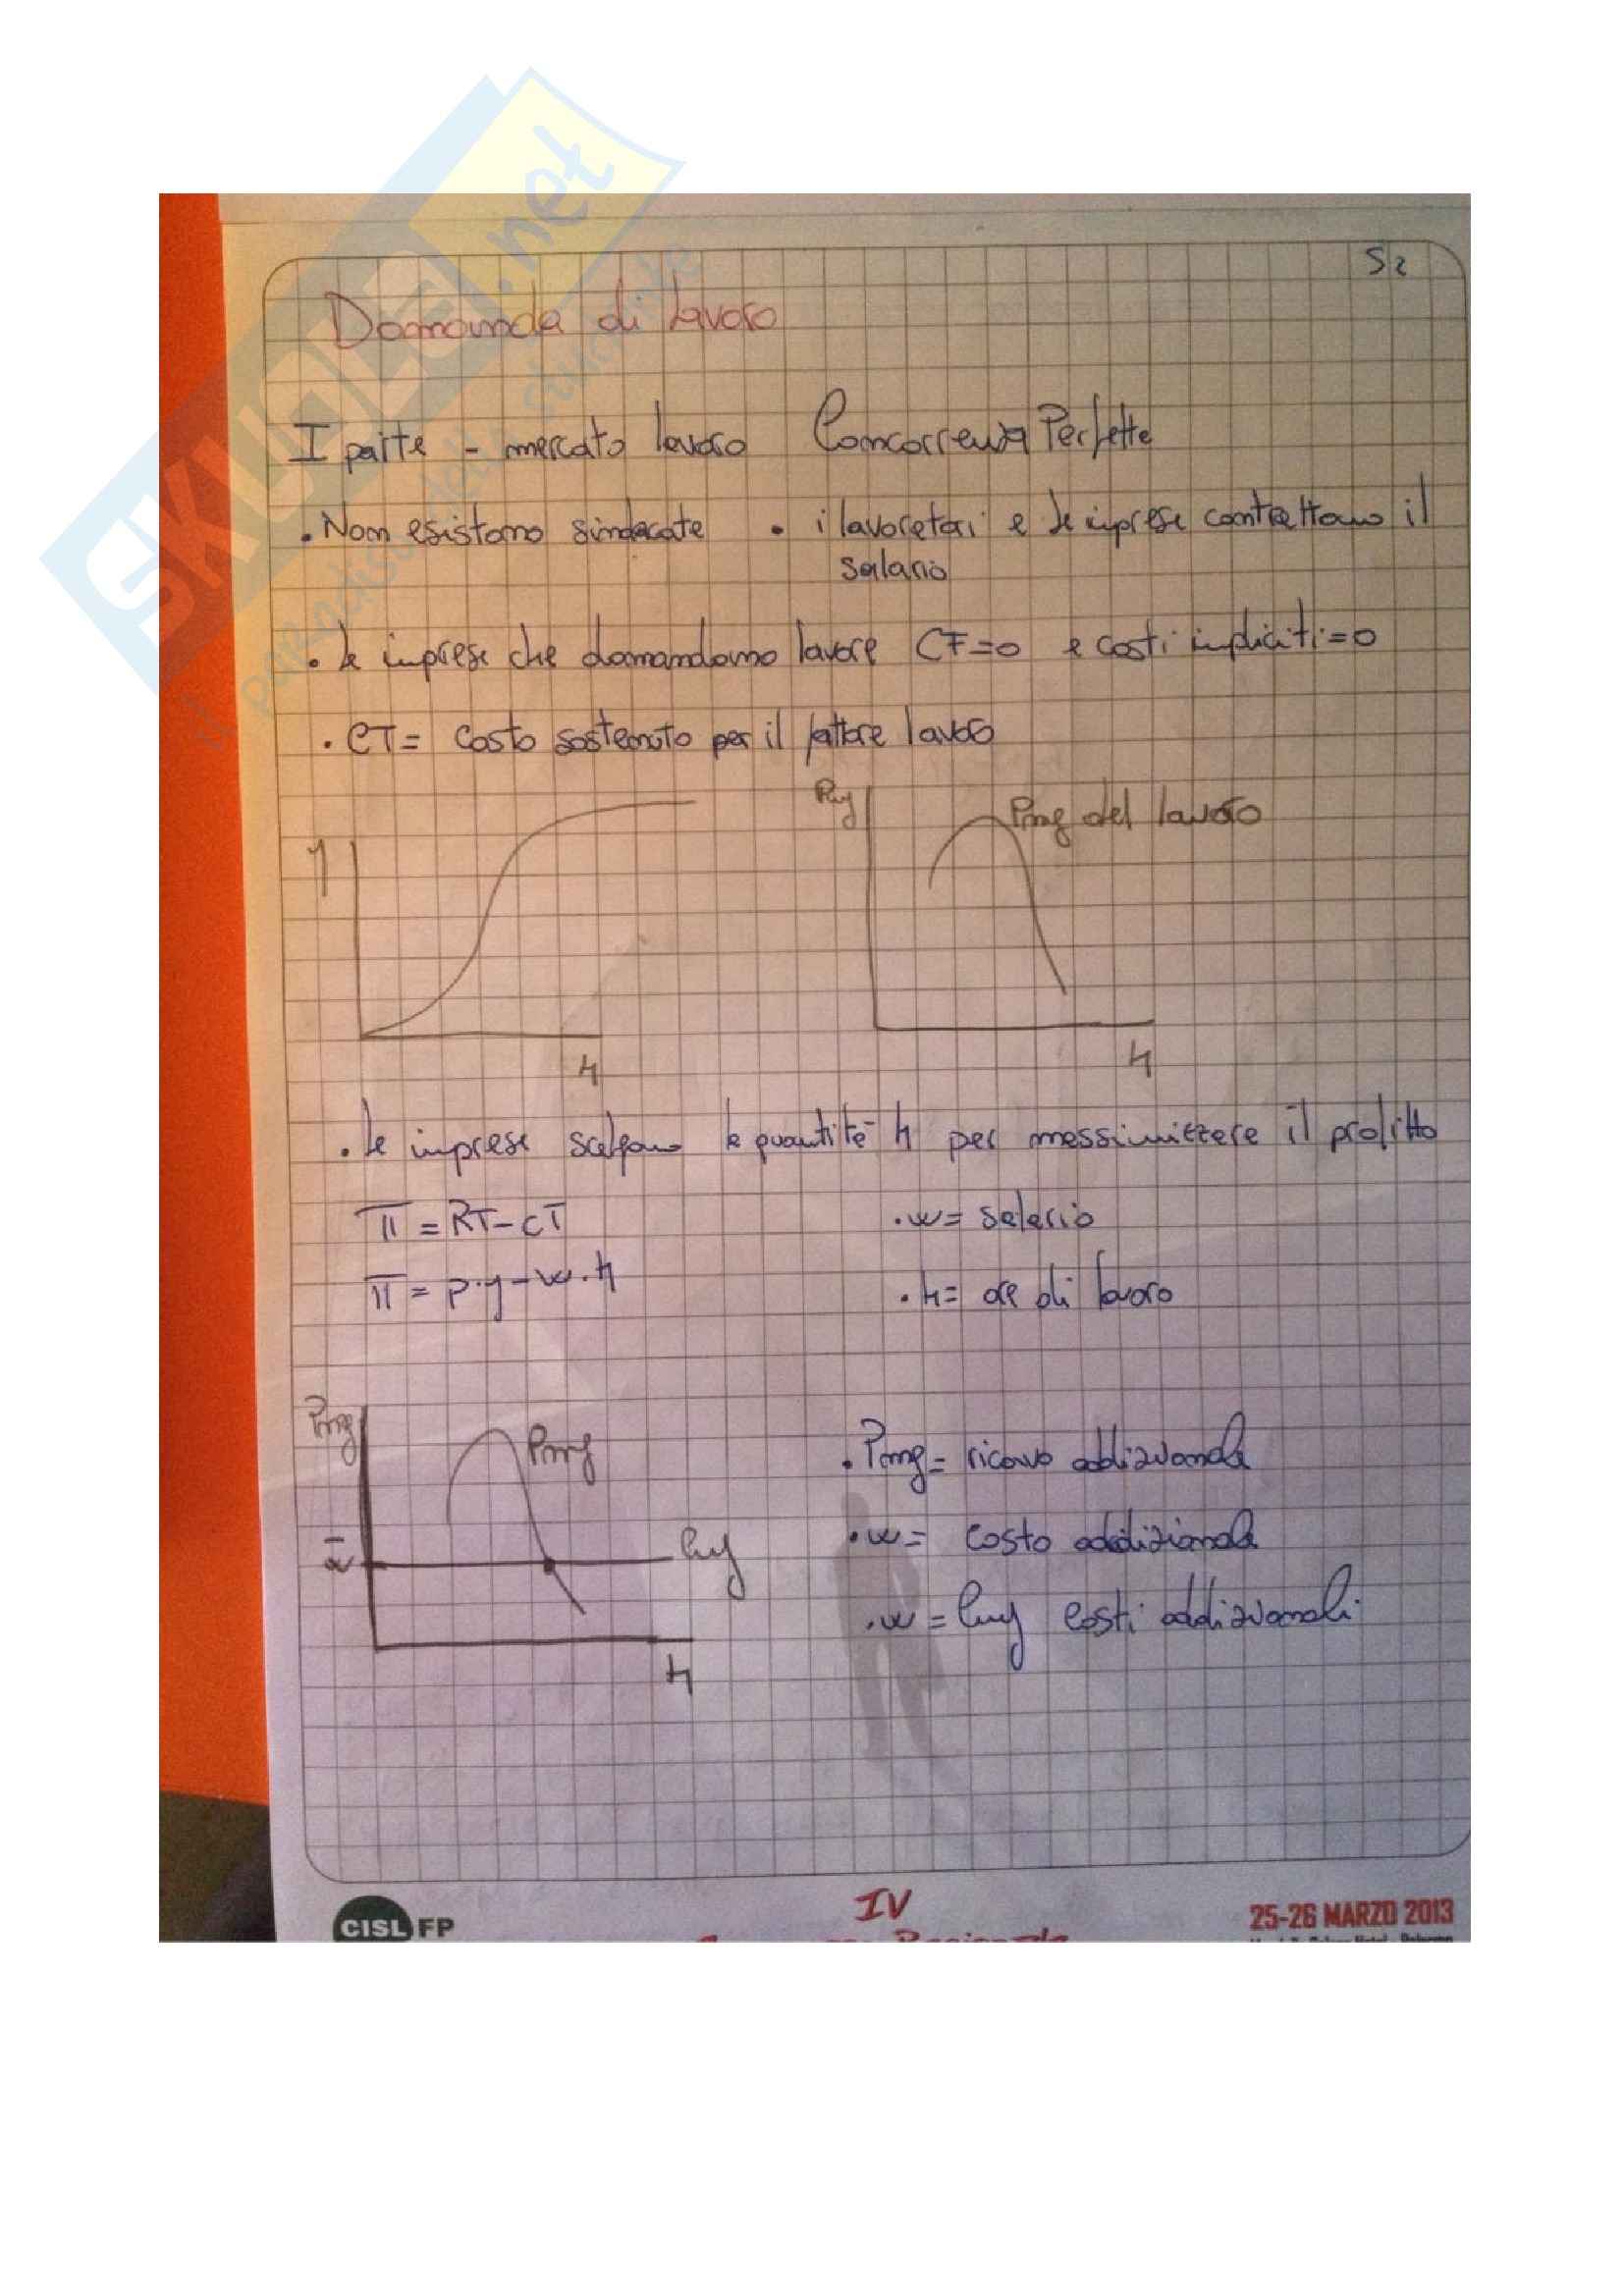 SKUOLA.net
il paradiso dello studente
52
Domanda di lavoro
I parte - mercato lavoro Concorrenza Perfetta
. Non esistono sindacate . i lavoratori e le imprese contrattano il
salario
. le imprese che domandano lavore CF=0 e costi impliciti=0
. CT= costo sostenuto per il fattore lavoro
Pmg
Pmg del lavoro
y
h
h
. le imprese scelgono la quantità h per massimizzare il profitto
π = RT-CT .w= salario
π = p.y-w.h .h= ore di lavoro
Pmg
Pmg
.Pmg= ricavo addizionale
w̄
.w= costo addizionale
.w= costi addizionali
h
CISL FP
IV
25-26 MARZO 2013